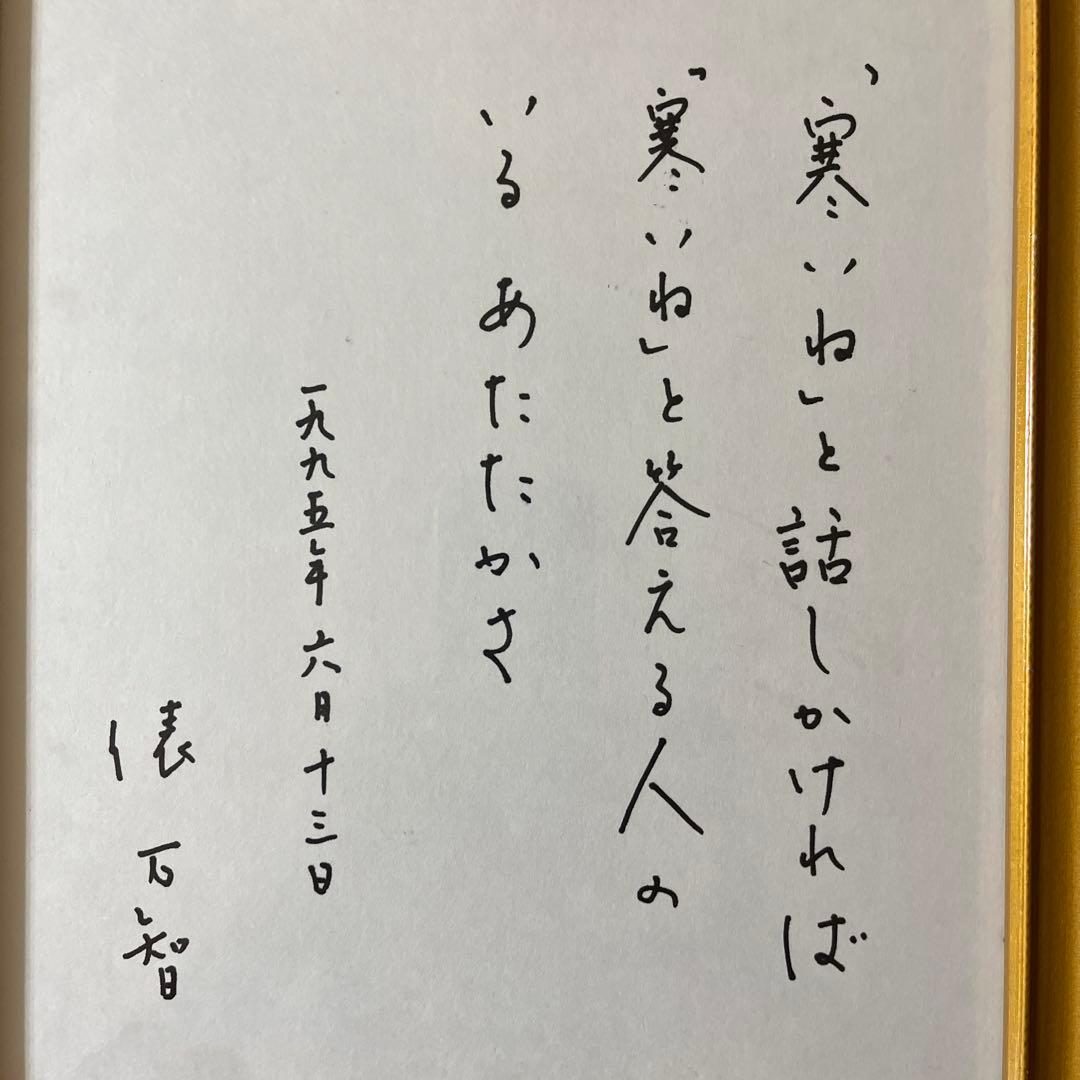 「寒いね」と話しかければ
「寒いね」と答える人の
いるあたたかさ
一九九五年六月十三日
俵万智